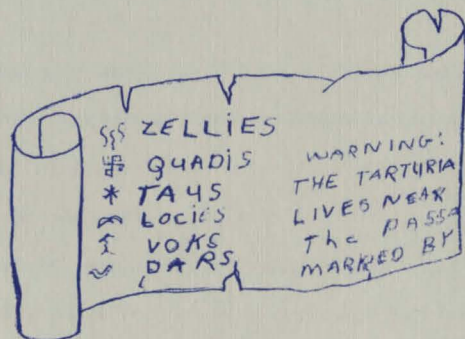 ZELLIES
QUADIS
TAYS
LOCIES
VOKS
DARS
WARNING:
THE TARTURIA
LIVES NEAR
The PASSA
MARKED BY